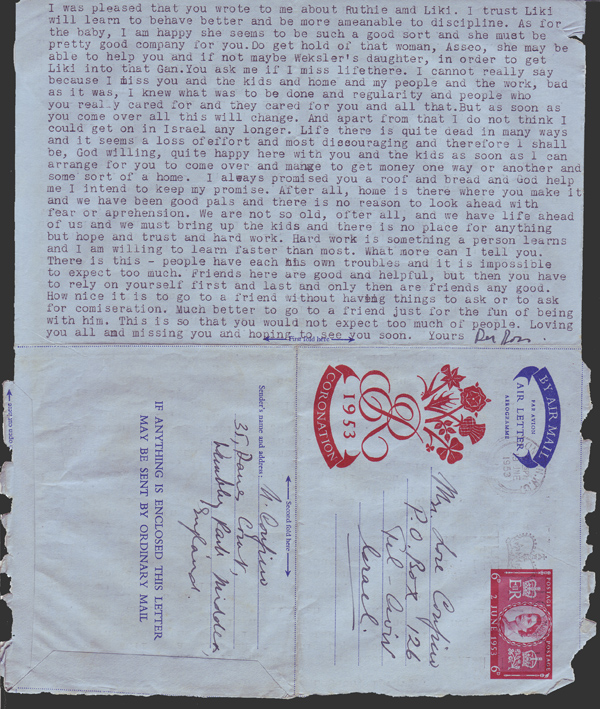 I was pleased that you wrote to me about Ruthie amd Liki. I trust Liki
will learn to behave better and be more ameanable to discipline. As for
the baby, I am happy she seems to be such a good sort and she must be
pretty good company for you.Do get hold of that woman, Assco, she may be
able to help you and if not maybe Weksler's daughter, in order to get
Liki into that Gan.You ask me if I miss lifethere. I cannot really say
because I miss you and the kids and home and my people and the work, bad
as it was, I knew what was to be done and regularity and people who
you really cared for and they cared for you and all that.But as soon as
you come over all this will change. And apart from that I do not think I
could get on in Israel any longer. Life there is quite dead in many ways
and it seems a loss ofeffort and most discouraging and therefore I shall
be, God willing, quite happy here with you and the kids as soon as I can
arrange for you to come over and mange to get money one way or another and
some sort of a home. I always promised you a roof and bread and God help
me I intend to keep my promise. After all, home is there where you make it
and we have been good pals and there is no reason to look ahead with
fear or aprehension. We are not so old, ofter all, and we have life ahead
of us and we must bring up the kids and there is no place for anything
but hope and trust and hard work. Hard work is something a person learns
and I am willing to learn faster than most. What more can I tell you.
There is this - people have each his own troubles and it is impossible
to expect too much. Friends here are good and helpful, but then you have
to rely on yourself first and last and only then are friends any good.
How nice it is to go to a friend without having things to ask or to ask
for comiseration. Much better to go to a friend just for the fun of being
with him. This is so that you would not expect too much of people. Loving
you all and missing you and hoping to see you soon. Yours
First fold here
BY AIR MAIL
PAR AVION
AIR LETTER
AEROGRAMME
1953
ER
CORONATION
1953
POSTAGE POSTAGE
ER
6D 6D
2 JUNE 1953
Mrs. Lore
P.O. Box 126
Tel-Aviv
Israel.
Second fold here
Sender's name and address:
35, Court,
Wembley Park Middlesex,
England.
IF ANYTHING IS ENCLOSED THIS LETTER
MAY BE SENT BY ORDINARY MAIL
open cut here